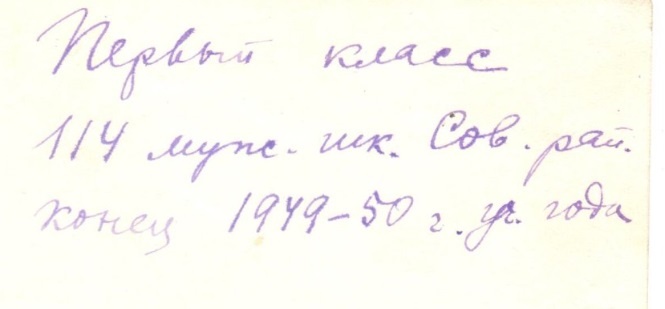 Первый класс
114 муж. шк. Сов. рай.
конец 1949-50 г. уч. года